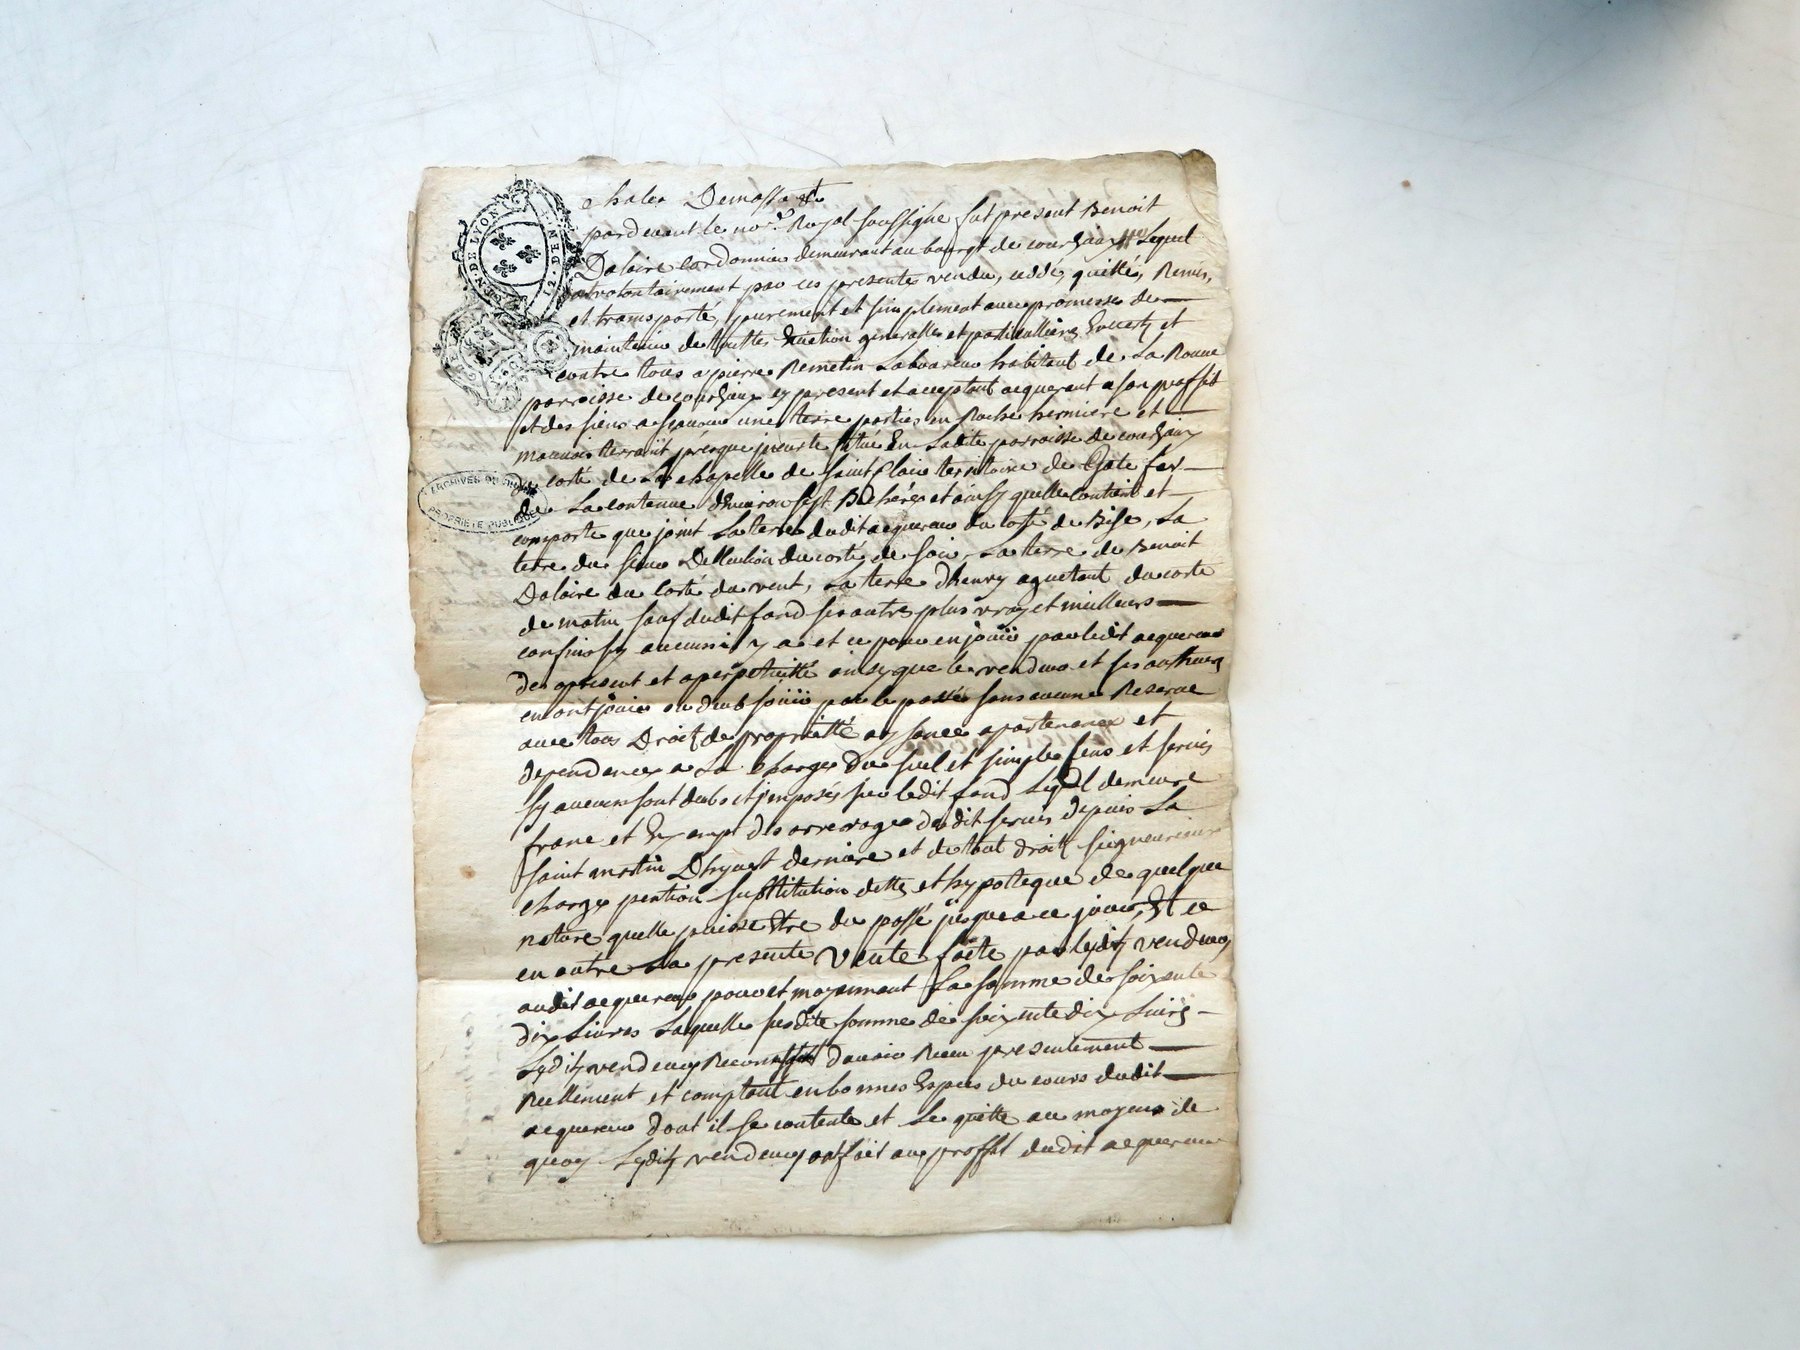 GEN · DE · LYON
12 · DEN
ARCHIVES DU
PROPRIÉTÉ PUBLIQUE
pardevant le no.re Royal soussigné fut present Benoit
Dalaire Cordonnier demeurant au bourgt de courzaux Lequel
volontairement par ces presentes vendu, ceddé, quitté, Remis,
et transporté, purement et simplement avec promesse de
maintenir de touttes Eviction generalles et particullieres Envers et
contre tous a pierre Remetin Laboureur habitant de La Roue
parroisse de courzaux cy present et acceptant acquerant a son proffit
et des siens a scavoir une terre parties en Roche hermiere et
mauvais terrain presque situé En Ladite parroisse de courzaux
du coté de La chapelle de saint Clair territoire de
de La contenue d'environ sept Bicherées et ainsy quelle contient et
comporte que joint La terre dudit acquereur du coté de Bise, La
terre du sieur du coté de soir, La terre de Benoit
Dalaire du Coté du vent, La terre dhenry aguetant du coté
de matin sauf dudit fond ses autres plus vray et meilleurs
confins sy aucuns il y a et ce pour en jouir par ledit acquereur
des apresent et a perpetuitté ainsy que le vendeur et ses autheurs
en ont jouir ou deub jouir par le passé sans aucune Reserve
avec tous Droits de proprietté aysance apartenance et
dependence a La charge du seul et simple sens et servis
sy aucuns sont dubs et imposés sur ledit fond Lequel demeure
franc et Exempt des arrerages dudit servis depuis La
saint martin D'hyvert derniere et de tout droits seigneuriaux
charge pention substitution dettes et hypoteque de quelque
nature quelle puisse Etre du passé jusque a ce jour, Et ce
en outre La presente Vente faitte par Lesdits vendeurs
audit acquereur pour et moyennant La somme de soixante
dix Livres Laquelle susdite somme de soixente dix Livres
Lesdits vendeurs d'avoir Receu presentement
Reellement et comptant en bonnes Especes du cours dudit
acquereur dont il se contente et Le quitte au moyens de
quoy Lesdits vendeurs ont fait au proffit dudit acquereur